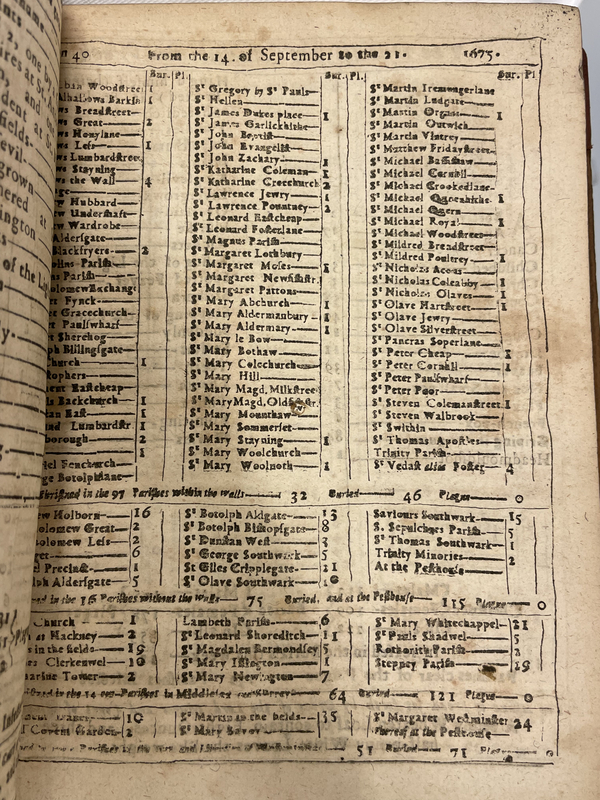 n 40 From the 14. of September to the 21. 1675.
Bur. Pl.
Woodstreet 1
Alhallows Barkin 1
ws Breadstreet
ws Great 2
ws Honylane
ws Less 1
ws Lumbardstreet
ws Stayning
ws the Wall 4
Hubbard
w Undershaft
w Wardrobe
Aldersgate
Blackfryers 2
Parish
s Parish
olomew Exchange
t Fynck
t Gracechurch
t Paulswharf
t Sherehog
ph Billingsgate
Church 1
tophers
ent Eastcheap
s Backchurch 1
tan East 1
nd Lumbardstr. 1
borough 2
1
iel Fenchurch
ge Botolphlane
Bur. Pl.
St Gregory by St Pauls
St Hellen
St James Dukes place 1
St James Garlickhithe
St John Baptist
St John Evangelist
St John Zachary 1
St Katharine Coleman 1
St Katharine Creechurch 2
St Lawrence Jewry 1
St Lawrence Pountney 2
St Leonard Eastcheap
St Leonard Fosterlane
St Magnus Parish
St Margaret Lothbury
St Margaret Moses 1
St Margaret Newfishstr.
St Margaret Pattons
St Mary Abchurch 1
St Mary Aldermanbury 1
St Mary Aldermary 1
St Mary le Bow
St Mary Bothaw
St Mary Colechurch
St Mary Hill
St Mary Magd. Milkstreet
St Mary Magd. Oldfishstr.
St Mary Mounthaw
St Mary Sommerset
St Mary Stayning 1
St Mary Woolchurch
St Mary Woolnoth 1
Bur. Pl
St Martin Iremongerlane
St Martin Ludgate
St Martin Organs 1
St Martin Outwich
St Martin Vintrey
St Matthew Fridaystreet
St Michael Bassishaw
St Michael Cornhil
St Michael Crookedlane
St Michael Queenhithe 1
St Michael Quern
St Michael Royal 1
St Michael Woodstreet
St Mildred Breadstreet
St Mildred Poultrey 1
St Nicholas Acons
St Nicholas Coleabby 1
St Nicholas Olaves 1
St Olave Hartstreet 1
St Olave Jewry
St Olave Silverstreet
St Pancras Soperlane
St Peter Cheap 1
St Peter Cornhil 1
St Peter Paulswharf
St Peter Poor
St Steven Colemanstreet 1
St Steven Walbrook
St Swithin
St Thomas Apostles
Trinity Parish
St Vedast alias Foster 4
Christned in the 97 Parishes within the walls 32 Buried 46 Plague 0
w Holborn 16
olomew Great 2
olomew Less 2
get 6
l Precinct 1
lph Aldersgate 5
St Botolph Aldgate 13
St Botolph Bishopsgate 8
St Dunstan West 3
St George Southwark 5
St Giles Cripplegate 21
St Olave Southwark 10
Saviours Southwark 15
S. Sepulchres Parish 5
St Thomas Southwark 1
Trinity Minories 2
At the Pesthouse
in the 16 Parishes without the Walls 75 Buried, and at the Pesthouse 115 Plague 0
Church 1
at Hackney 2
s in the fields 19
es Clerkenwel 10
arine Tower 2
Lambeth Parish 6
St Leonard Shoreditch 11
St Magdalen Bermondsey 5
St Mary Islington 1
St Mary Newington 7
St Mary Whitechappel 21
St Pauls Shadwel 5
Rotherith Parish 2
Stepney Parish 19
in the 14 out-Parishes in Middlesex and Surrey 64 Buried 121 Plague 0
Danes 10
Covent Garden 2
St Martin in the fields 35
St Mary Savoy
St Margaret Westminster 24
thereof at the Pesthouse
Parishes in the City and Liberties of Westminster 51 Buried 71 Plague 0